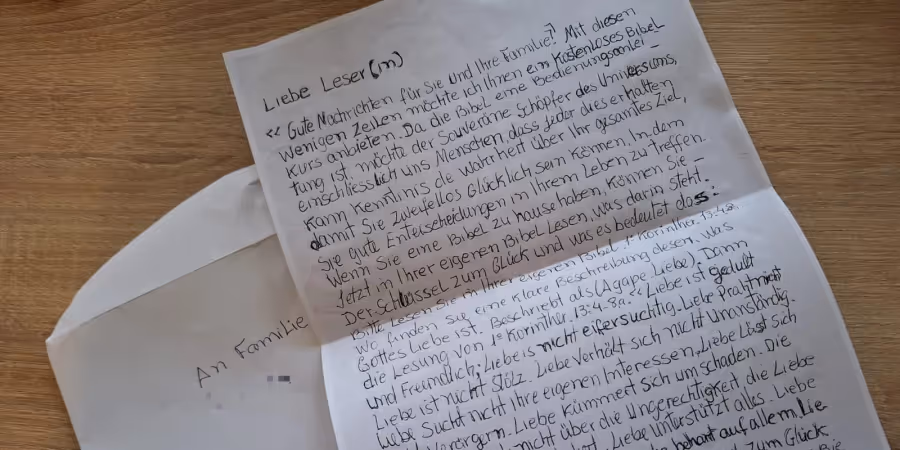 Liebe Leser(in)
« Gute Nachrichten für Sie und Ihre Familie? Mit diesen
wenigen Zeilen möchte ich Ihnen ein Kostenloses Bibel
kurs anbieten. Da die Bibel eine Bedienungsanlei-
tung ist, möchte der Souveräne Schöpfer des Universums,
einschliesslich uns Menschen, dass jeder dies erhalten
kann Kenntnis die wahrheit über Ihr gesamtes Ziel,
damit Sie zweifellos Glücklich sein können, In dem
Sie gute Entscheidungen in Ihrem Leben zu treffen.
Wenn Sie eine Bibel zu hause haben, können Sie -
Jetzt in Ihrer eigenen Bibel Lesen, was darin steht.
Der Schlüssel zum Glück und was es bedeutet das:
Bitte Lesen Sie in Ihrer eigenen Bibel 1° Korinther. 13:4.8a.
Wo finden Sie eine Klare Beschreibung desen, was
Gottes Liebe ist. Beschreibt als (Agape Liebe). Dann
die Lesung von 1° Korinther. 13:4-8a. Liebe ist gedult
und Freundlich, Liebe is nicht eifersuchtig. Liebe Prahlt nicht
Liebe ist nicht Stolz. Liebe Verhält sich nicht Unanständig.
Liebe Sucht nicht Ihre eigenen Interessen, Liebe Lässt sich
Verärgern. Liebe Kümmert sich um schaden. Die
nicht über die Ungerechtigkeit die Liebe
Liebe Unterstützt alles. Liebe
auf allem. Lie
zum Glück
An Familie